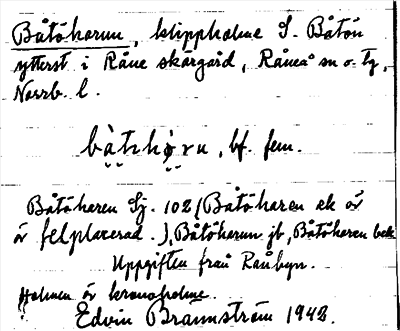 Båtöharun, klippholme S. Båtön
ytterst i Råne skärgård, Råneå sn o. tg,
Norrb. l.
bàtɩhǫrn, bf. fem.
Båtöharen Sj. 102 (Båtöharen ek är
är felplacerad.), Båtöharun jb, Båtöharen bek
Uppgiften från Rånbyn.
Holmen är kronoholme.
Edvin Brännström 1942.